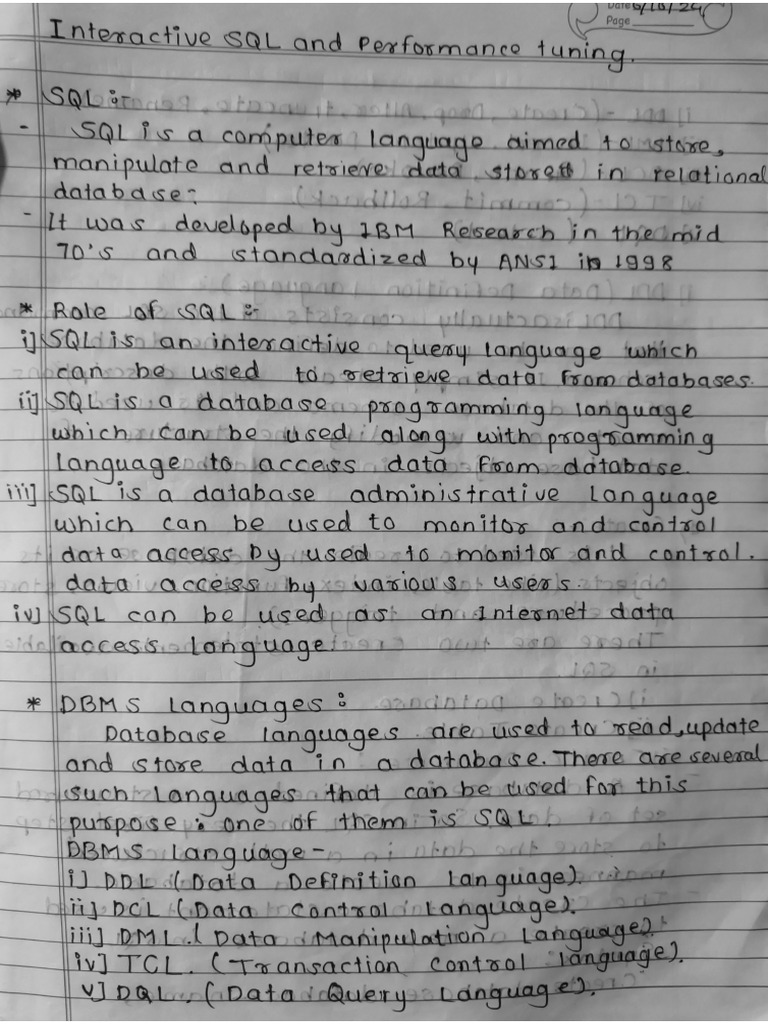 Date 5/10/24
Page
Interactive SQL and Performance tuning.
* SQL :-
- SQL is a computer language aimed to store,
manipulate and retrieve data stored in relational
database:
- It was developed by IBM Research in the mid
70's and standardized by ANSI in 1998
* Role of SQL :-
i] SQL is an interactive query language which
can be used to retrieve data from databases.
ii] SQL is a database programming language
which can be used along with programming
language to access data from database.
iii] SQL is a database administrative language
which can be used to monitor and control
data access by used to monitor and control.
data access by various users.
iv] SQL can be used as an Internet data
access language
* DBMS languages :
Database languages are used to read, update
and store data in a database. There are several
such languages that can be used for this
purpose : one of them is SQL.
DBMS language -
i] DDL (Data Definition language).
ii] DCL (Data Control Language).
iii] DML. (Data Manipulation Language).
iv] TCL. (Transaction Control language).
v] DQL. (Data Query Language).